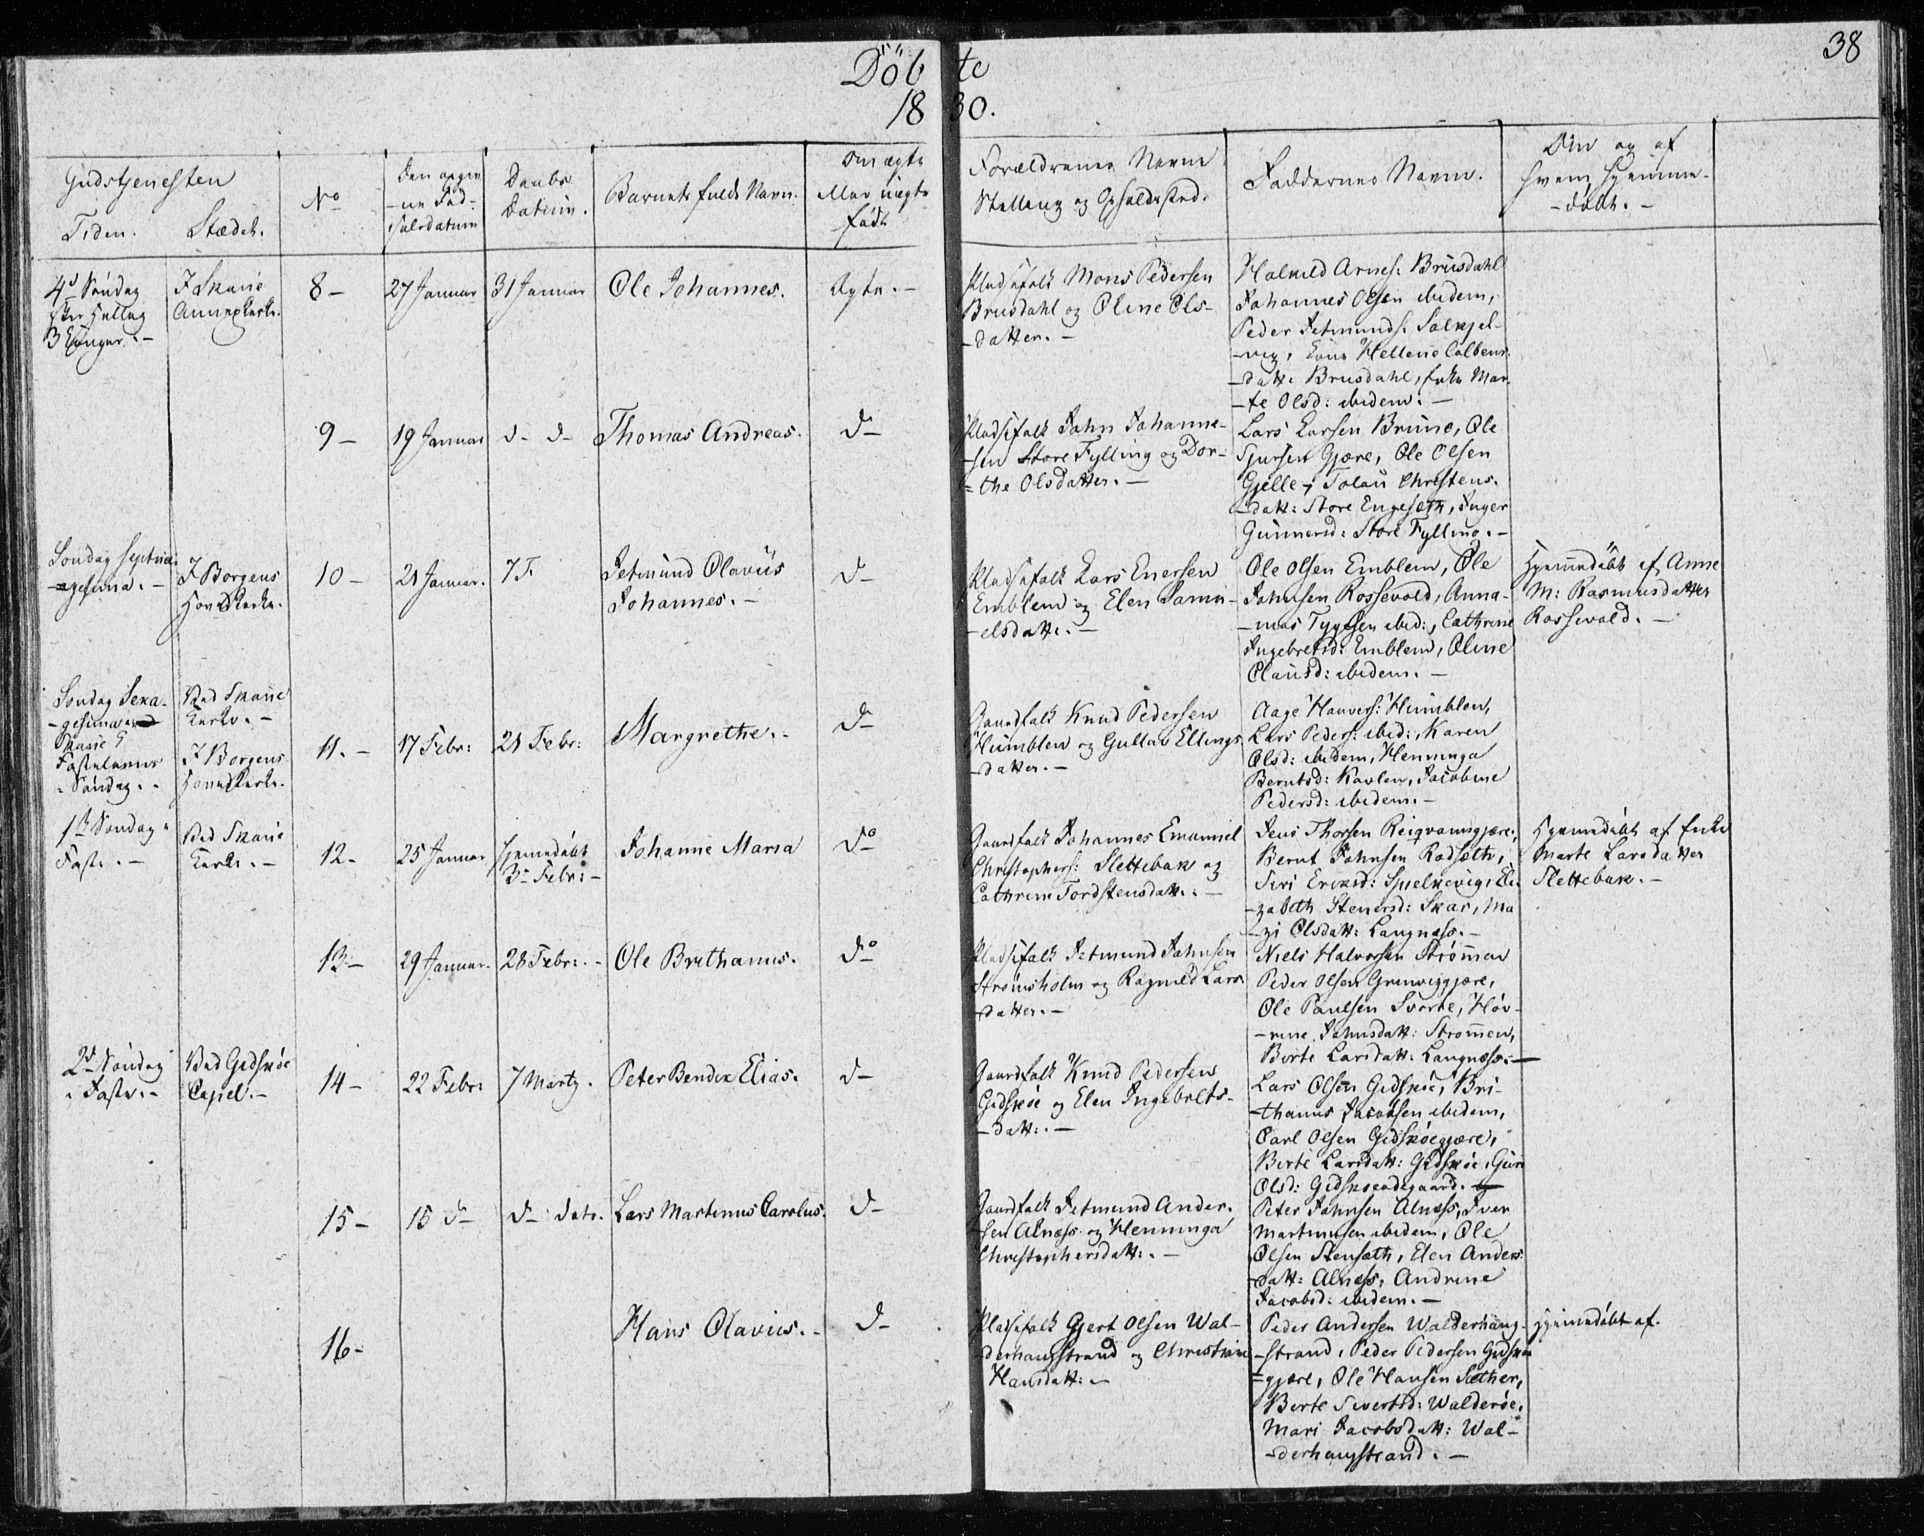 Döbte
38
1830.
Gudstjenesten
Tiden.
Stædet.
No
Den opgiv
-ne Föd-
selsdatum
Daabs
Datum.
Barnets fulde Navn.
Om ægte
eller uægte
født
Forældrenes Navne
Stilling og Opholdssted.
Faddernes Navne.
Om og af
hvem hjemme-
-döbt. -
4d Söndag
efter Hellig
3 Konger. -
I Skoue
Annexkirke.
8 -
27 Januar
31 Januar
Ole Johannes.
Ægte. -
Pladsefolk Mons Pedersen
Brusdahl og Oline Ols-
-datter. -
Halvild Arnes: Brusdahl
Johannes Olsen ibidem,
Peder Jetmunds:
-vig,
-datt: Brusdahl, Enke Mar-
-te Olsd: ibidem. -
9 -
19 Januar
d- d-
Thomas Andreas.
d-
Pladsefolk John Johanne-
-sen Store Fylling og Dor-
=the Olsdatter. -
Lars Larsen Brune, Ole
Sjursen Gjære, Ole Olsen
Gjelle, Christens-
-datt: Store Engeseth, Inger
Gunnersd: Store Fylling. -
Söndag Septua-
-gesima. -
I Borgens
Hovedkirke.
10 -
21 Januar.
7 F
Jetmund Olavüs
Johannes. -
d-
Pladsefolk Lars Enersen
Emblem og Elen Samu-
-elsdatt:. -
Ole Olsen Emblem, Ole
Johnsen Rossevold, Anna-
ibid:, Cathrine
Ingebretsd: Emblem, Oline
Clausd: ibidem. -
Hjemmedöbt af Anne
M: Rasmusdatter
Rossevold. -
Söndag Sexa-
-gesima
Fastelavns
-Söndag. -
Ved Skoue
Kirke. -
I Borgens
Hovedkirke.
11. -
17 Febr:
21 Febr:
Margrethe. -
d-
Gaardfolk Knud Pedersen
Humblen og Gullau Ellings
-datter. -
Aage Havers: Humblen,
Lars Peders: ibid:, Karen
Olsd: ibidem, Henninga
Berntsd: Kavlen, Jacobine
Pedersd: ibidem. -
1te Söndag
Faste. -
Ved Skoue
Kirke. -
12 -
25 Januar
hjemmedöbt
3- Febr: -
Johanne Maria
do
Gaardfolk Johannes Emanuel
Christophers: Slettebak og
Cathrine Tordstensdatt:. -
Jens Thorsen
Bernt Johnsen Rødseth,
Siri Eriksd: Spjelkevig, Eli-
-zabeth Stenersd: Skar, Ma-
-ri Olsdatt: Langnæss. -
Hjemmedöbt af Enke
Marte Larsdatter
Slettebak. -
13 -
29 Januar.
28 Febr: -
Ole Brithanus.
do
Pladsefolk Jetmund Johnsen
Strömsholm og Ragnild Lars
-datter. -
Niels Halvorsen Strømmen
Peder Olsen Grunviggjære,
Ole Paulsen Svorte, Høv-
-rine Johnsdatt: Strömmen,
Berte Larsdatt: Langnæss. -
2d Söndag
i Faste. -
Ved Gidsköe
Capel. -
14 -
22 Febr:
7 Marty.
Peter Bendix Elias.
d-
Gaardfolk Knud Pedersen
Gidsköe og Elen Ingebrets-
-datt:. -
Lars Olsen Gidsköe, Bri-
-thanus Jacobsen ibidem,
Carl Olsen Gidsköegjære,
Berte Larsdatt: Gidsköe, Guri
Olsd: Gidsköeødegaard.
15 -
15 d-
d- dato.
Lars Martinus Carolus.
d-
Gaardfolk Jetmund Ander-
-sen Alnæss og Henninga
Christophersdatt:. -
Peter Johnsen Alnæss, Iver
Martinusen ibidem, Ole
Olsen Stenseth, Elen Anders-
-datt: Alnæss, Andrine
Jacobsd: ibidem. -
16 -
Hans Olavius. -
d-
Pladsefolk Gjert Olsen Wal-
-derhaugstrand og Christiane
Hansdatt: -
Peder Andersen Walderhaug-
-strand, Peder Pedersen Gidsköe
=gjære, Ole Hansen Sæther,
Berte Sivertsd: Walderöe,
Mari Jacobsdatt: Wal-
-derhaugstrand. -
Hjemmedöbt af.